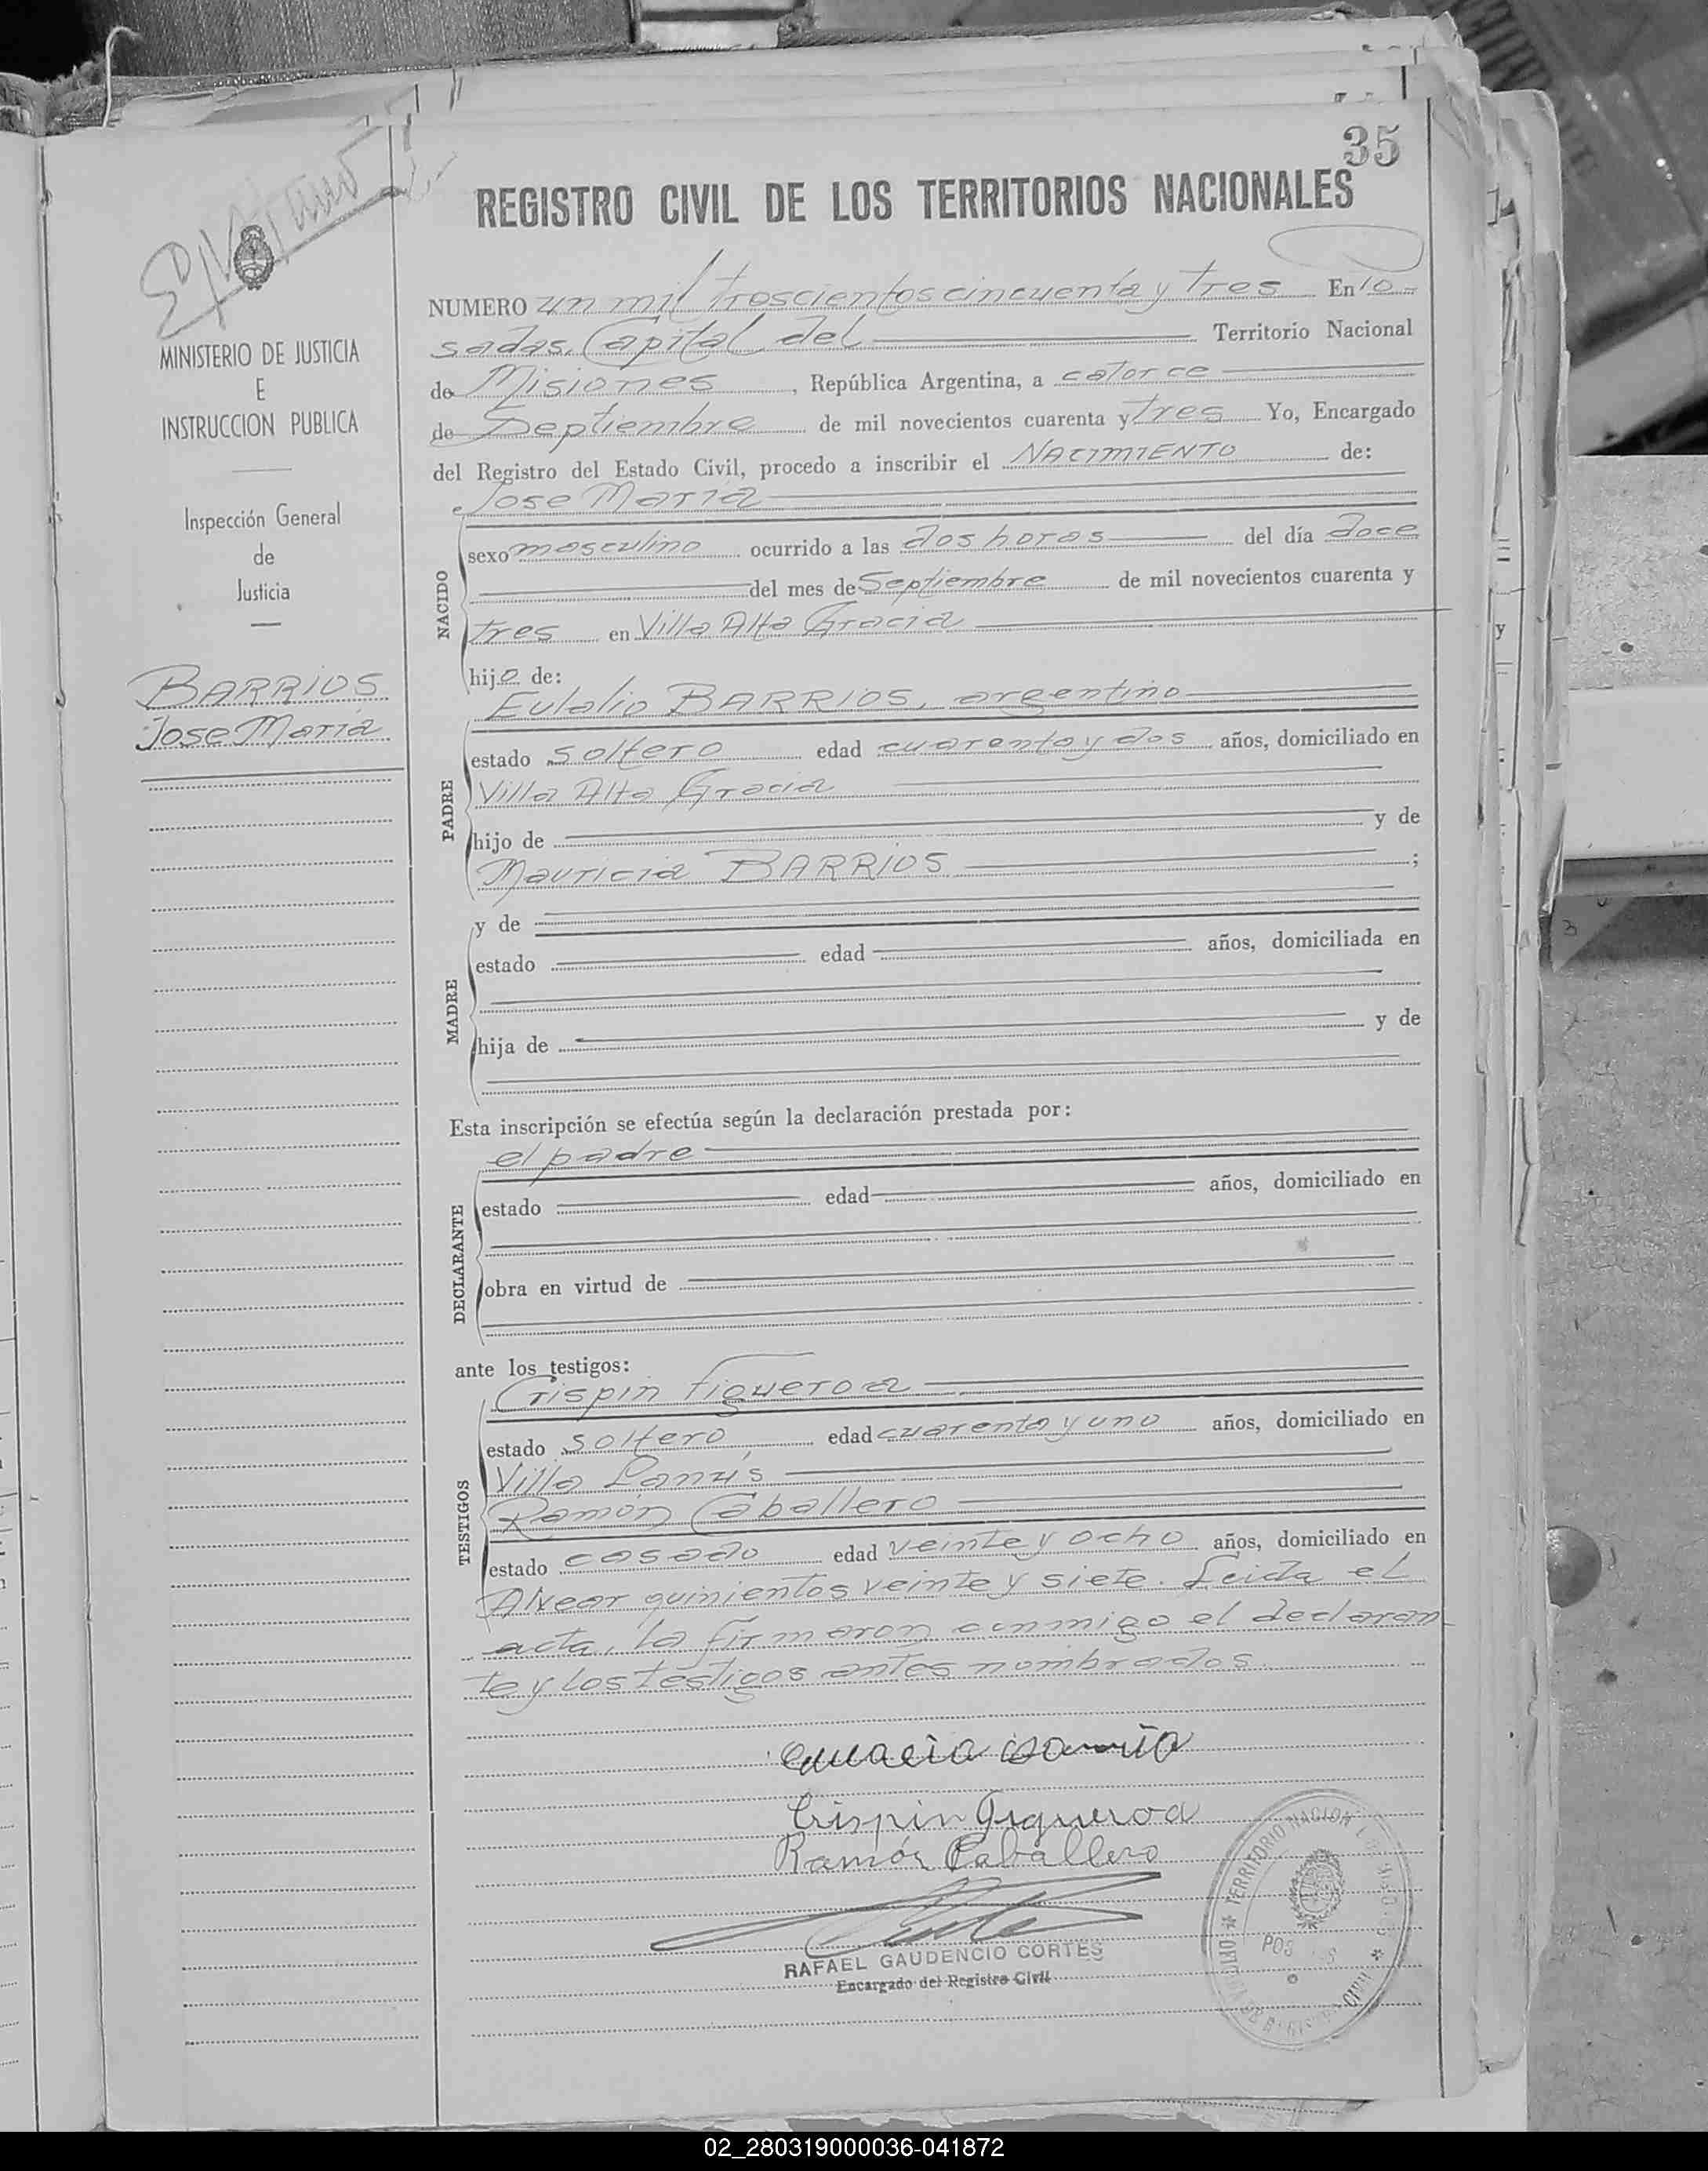 35
REGISTRO CIVIL DE LOS TERRITORIOS NACIONALES
MINISTERIO DE JUSTICIA
E
INSTRUCCION PUBLICA
Inspección General
de
Justicia
BARRIOS
Jose María
NUMERO un mil troscientos cincuenta y tres En Po-
sadas, Capital del Territorio Nacional
de Misiones, República Argentina, a catorce
de Septiembre de mil novecientos cuarenta y tres Yo, Encargado
del Registro del Estado Civil, procedo a inscribir el NACIMIENTO de:
Jose María
NACIDO
sexo masculino ocurrido a las dos horas del día doce
del mes de Septiembre de mil novecientos cuarenta y
tres en Villa Alta Gracia
hijo de:
Eulalio BARRIOS, argentino
PADRE
estado soltero edad cuarenta y dos años, domiciliado en
Villa Alta Gracia
hijo de y de
Mauricia BARRIOS ;
y de
MADRE
estado edad años, domiciliada en
hija de y de
Esta inscripción se efectúa según la declaración prestada por:
el padre
DECLARANTE
estado edad años, domiciliado en
obra en virtud de
ante los testigos:
Crispin Figueroa
TESTIGOS
estado soltero edad cuarenta y uno años, domiciliado en
Villa Lanús
Ramón Caballero
estado casado edad veinte y ocho años, domiciliado en
Alvear quinientos veinte y siete. Leida el
acta, la firmaron conmigo el declaran-
te y los testigos antes nombrados.
Crispin Figueroa
Ramón Caballero
RAFAEL GAUDENCIO CORTES
Encargado del Registro Civil
TERRITORIO NACIONAL
02_280319000036-041872